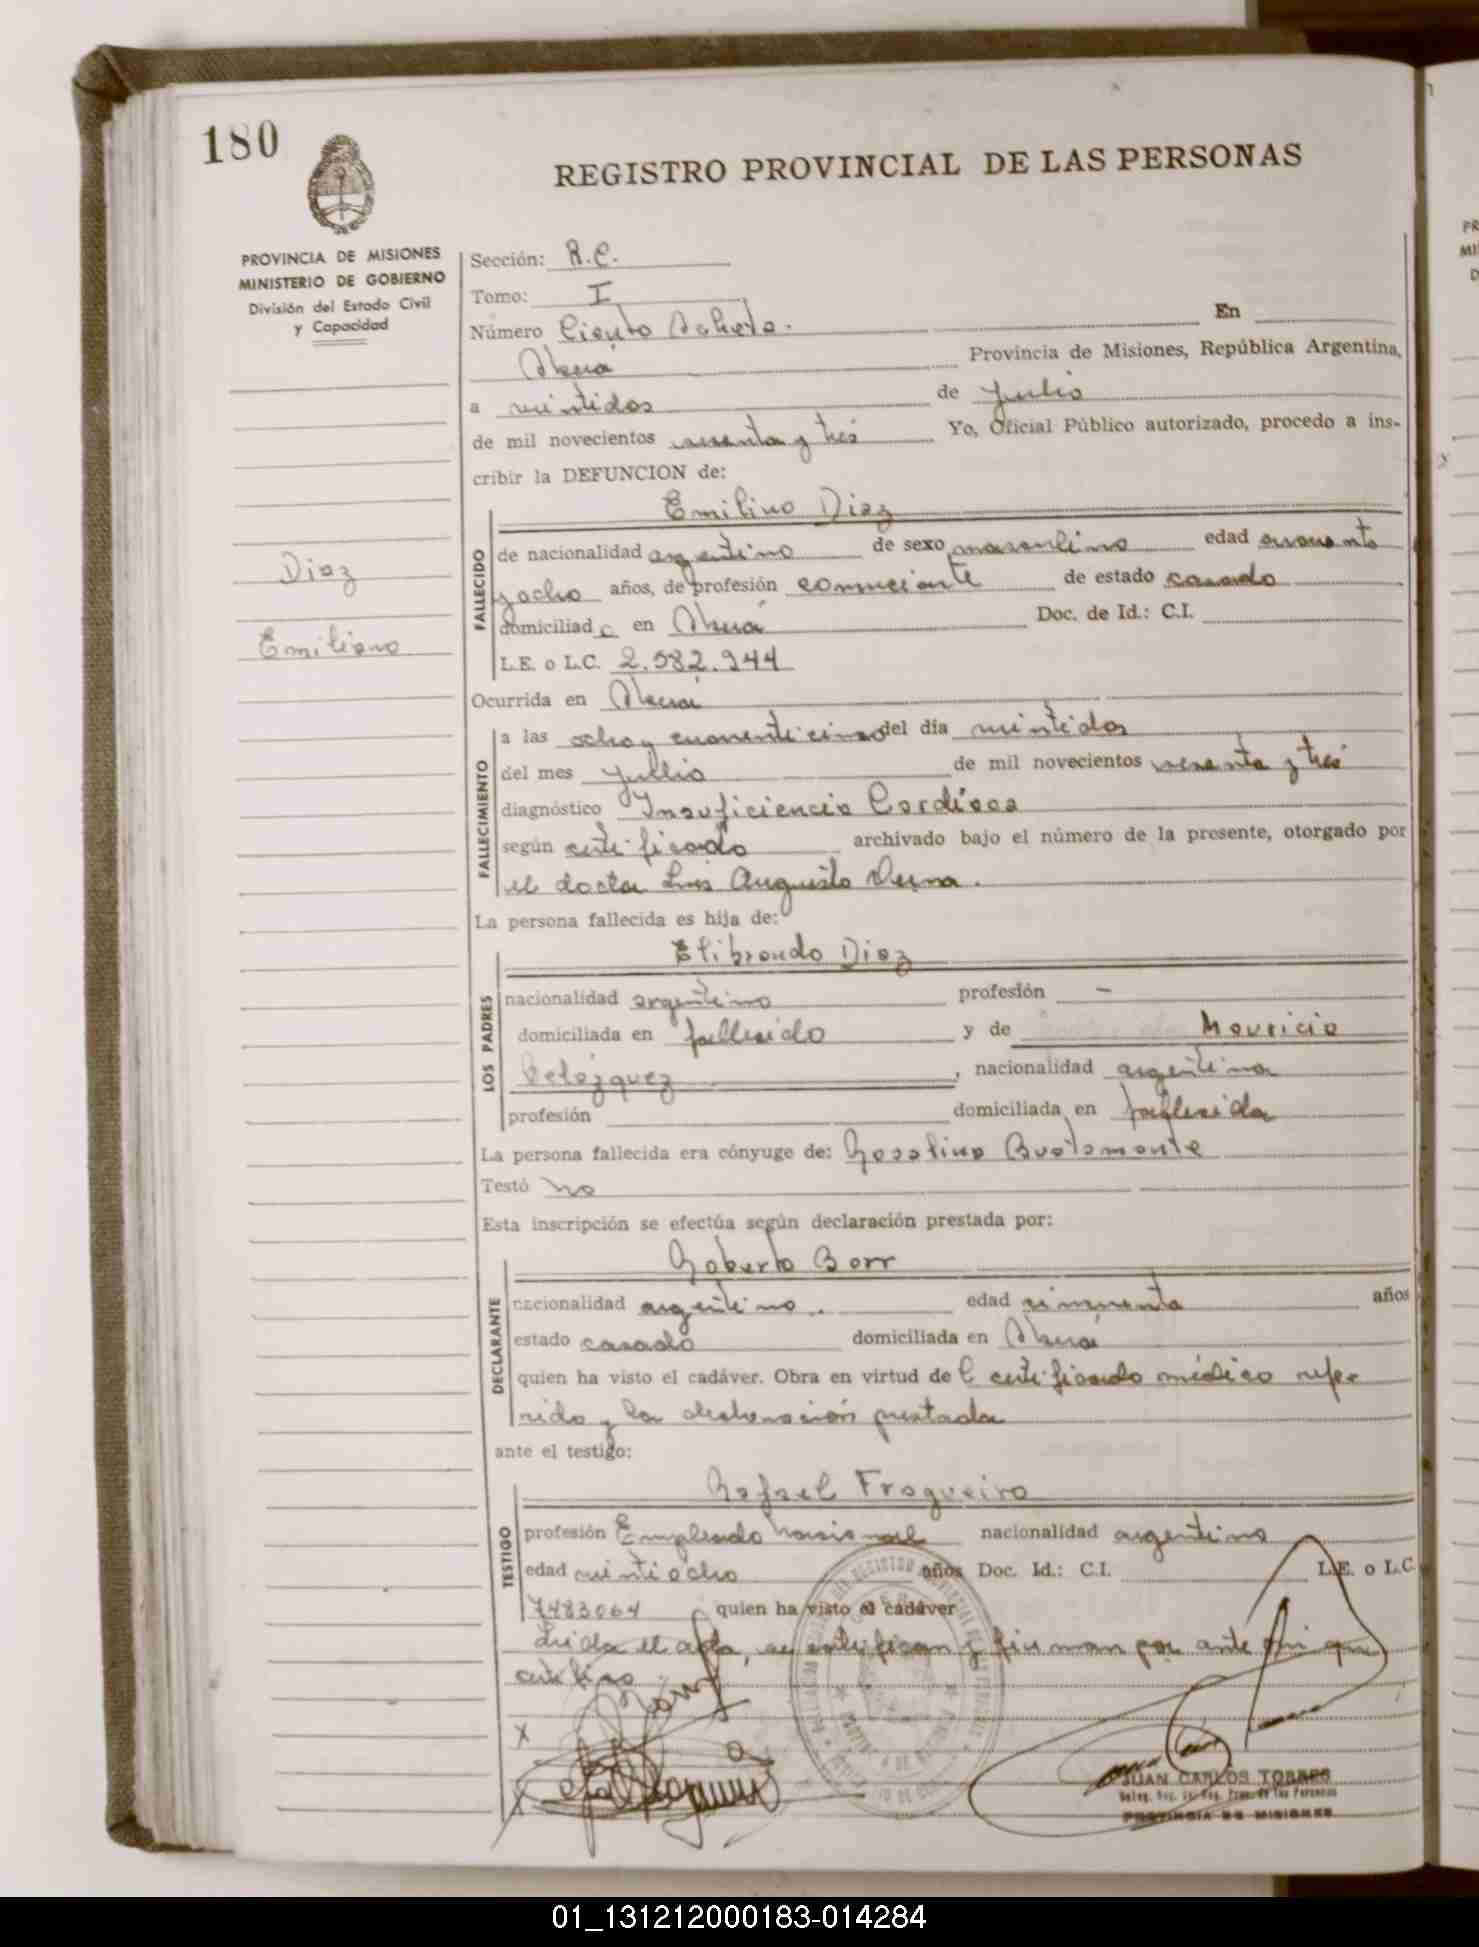 180
REGISTRO PROVINCIAL DE LAS PERSONAS
PROVINCIA DE MISIONES
MINISTERIO DE GOBIERNO
División del Estado Civil
y Capacidad
Sección: R.C.
Tomo: I
Número Ciento Ochenta. En
Oberá Provincia de Misiones, República Argentina,
a veintidos de Julio
de mil novecientos sesenta y tres Yo, Oficial Público autorizado, procedo a ins-
cribir la DEFUNCION de:
Emiliano Diaz
FALLECIDO
de nacionalidad argentino de sexo masculino edad
y ocho años, de profesión comerciante de estado casado
domiciliado en Oberá Doc. de Id.: C.I.
L.E. o L.C. 2.582.944
Diaz
Emiliano
Ocurrida en Oberá
FALLECIMIENTO
a las ocho y cuarenticinco del día veintidos
del mes Julio de mil novecientos sesenta y tres
diagnóstico Insuficiencia Cardiaca
según certificado archivado bajo el número de la presente, otorgado por
el doctor Luis Augusto
La persona fallecida es hija de:
LOS PADRES
Elibrando Diaz
nacionalidad argentino profesión -
domiciliada en fallecido y de Mauricia
Velázquez, nacionalidad argentina
profesión domiciliada en fallecida
La persona fallecida era cónyuge de: Rosalina Bustamante
Testó no
Esta inscripción se efectúa según declaración prestada por:
DECLARANTE
Roberto Borr
nacionalidad argentino. edad cincuenta años
estado casado domiciliada en Oberá
quien ha visto el cadáver. Obra en virtud de l certificado médico refe-
rido y la declaración prestada
ante el testigo:
TESTIGO
Rafael Fragueiro
profesión Empleado nacional nacionalidad argentino
edad veintiocho años Doc. Id.: C.I. L.E. o L.C.
7483064 quien ha visto el cadáver
Leida el acta, se ratifican y firman por ante mi que
certifico
X
X
JUAN CARLOS TORRES
PROVINCIA DE MISIONES
01_131212000183-014284